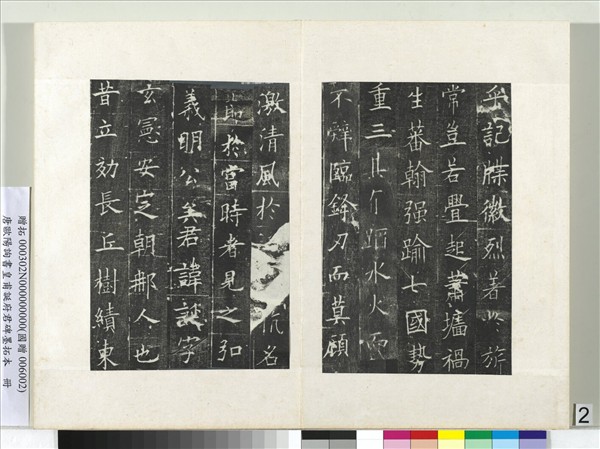 乎記牒徽烈著於旂
常豈若釁起蕭墻禍
生蕃翰强踰七國勢
重三蹈水火而
不辭臨鋒刃而莫顧
激清風於抗名
節於當時者見之弘
義明公矣君諱誕字
玄憲安定朝那人也
昔立効長丘樹績東
贈拓 000302N000000000(國贈 006002)
唐歐陽詢書皇甫誕府君碑墨拓本 冊
2